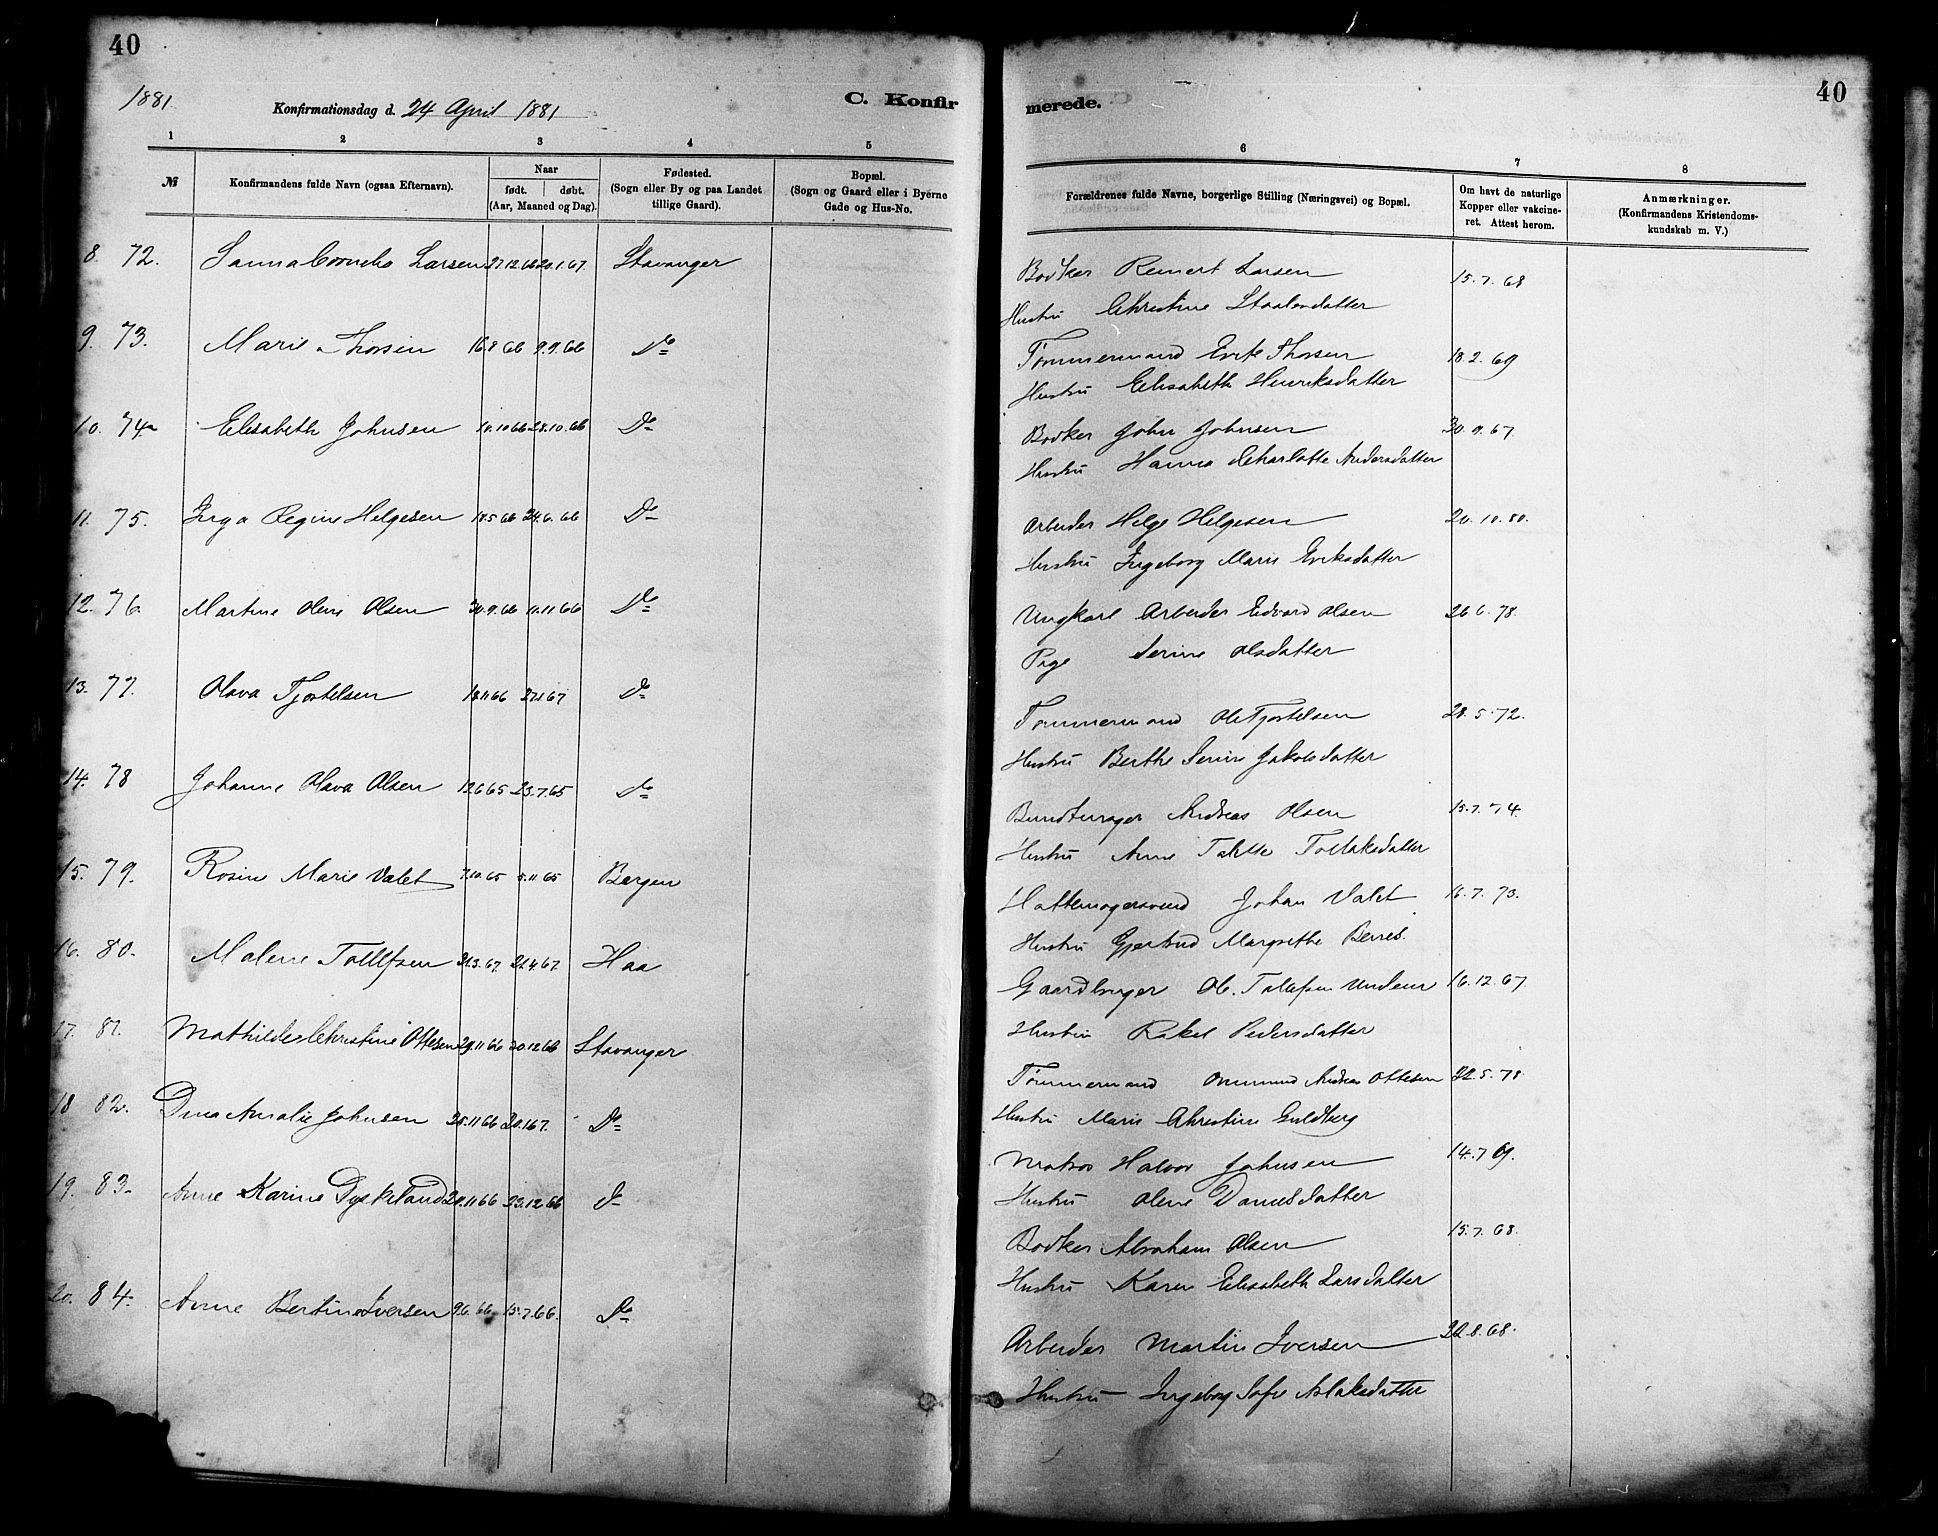 40
1881.
Konfirmationsdag d. 24 April 1881
C. Konfir
1 2 3 4 5
№
Konfirmandens fulde Navn (ogsaa Efternavn).
Naar
født. døbt.
(Aar, Maaned og Dag).
Fødested.
(Sogn eller By og paa Landet
tillige Gaard).
Bopæl.
(Sogn og Gaard eller i Byerne
Gade og Hus-No.
8. 72. Sanna Cornelia Larsen 27.12.66 20.1.67. Stavanger
9. 73. Marie Thorsen 16.8 66 9.9.66 Do
10. 74 Elisabeth Johnsen 10.10 66 28.10.66 Do
11. 75. Inga Regine Helgesen 18.5 66 24.6.66 Do
12. 76. Martine Olene Olsen 30.9.66 11.11 66 Do
13. 77. Olava Tjostelsen 18.11 66 27.1.67 Do
14. 78 Johanne Olava Olsen 12.6 65 23.7.65 Do
15. 79. Rosine Marie Valet 7.10.65 5.11 65 Bergen
16. 80. Malene Tollefsen 22.3.67. 22.4.67. Haa
17. 81. Mathilde Christine Ottesen 29.11 66 20.12 66 Stavanger
18 82. Dina Amalie Johnsen 25.11 66 20.1 67. Do
19. 83. Anne Karine Dyskeland 20.11 66 23.12 66 Do
20. 84. Anne Bertine Iversen 9.6.66 15.7.66. Do
40
merede.
6 7 8
Forældrenes fulde Navne, borgerlige Stilling (Næringsvei) og Bopæl.
Om havt de naturlige
Kopper eller vakcine-
ret. Attest herom.
Anmærkninger.
(Konfirmandens Kristendoms-
kundskab m. V.)
Bødker Reinert Larsen 15.7.68
Hustru Christine Staalesdatter
Tømmermand Erik Thorsen 18.2.69
Hustru Elisabeth Henriksdatter
Bødker John Johnsen 30.9.67.
Hustru Hanna Charlotte Andersdatter
Arbeider Helge Helgesen 20.10.80.
Hustru Ingeborg Marie Eriksdatter
Ungkarl Arbeider Edvard Olsen 26 6.78.
Pige Serine Olsdatter
Tømmermand Ole Tjostelsen 28.5.72.
Hustru Berthe Serine Jakobsdatter
Bundtmager Andreas Olsen 15.7.74.
Hustru Anne Tollaksdatter
Hattemagersvend Johan Valet 16.7.73.
Hustru Gjertrud Margrethe
Gaardbruger Ole Tollefsen 16.12.67
Hustru Rakel Pedersdatter
Tømmermand Ommund Andreas Ottesen 22.5.78
Hustru Marie Christine Guldberg
Matros Halvor Johnsen 14.7 69.
Hustru Olene Danielsdatter
Bødker Abraham Olsen 15.7.68.
Hustru Karen Elisabeth Larsdatter
Arbeider Martin Iversen 22.8.68.
Hustru Ingeborg Sofie Aslaksdatter